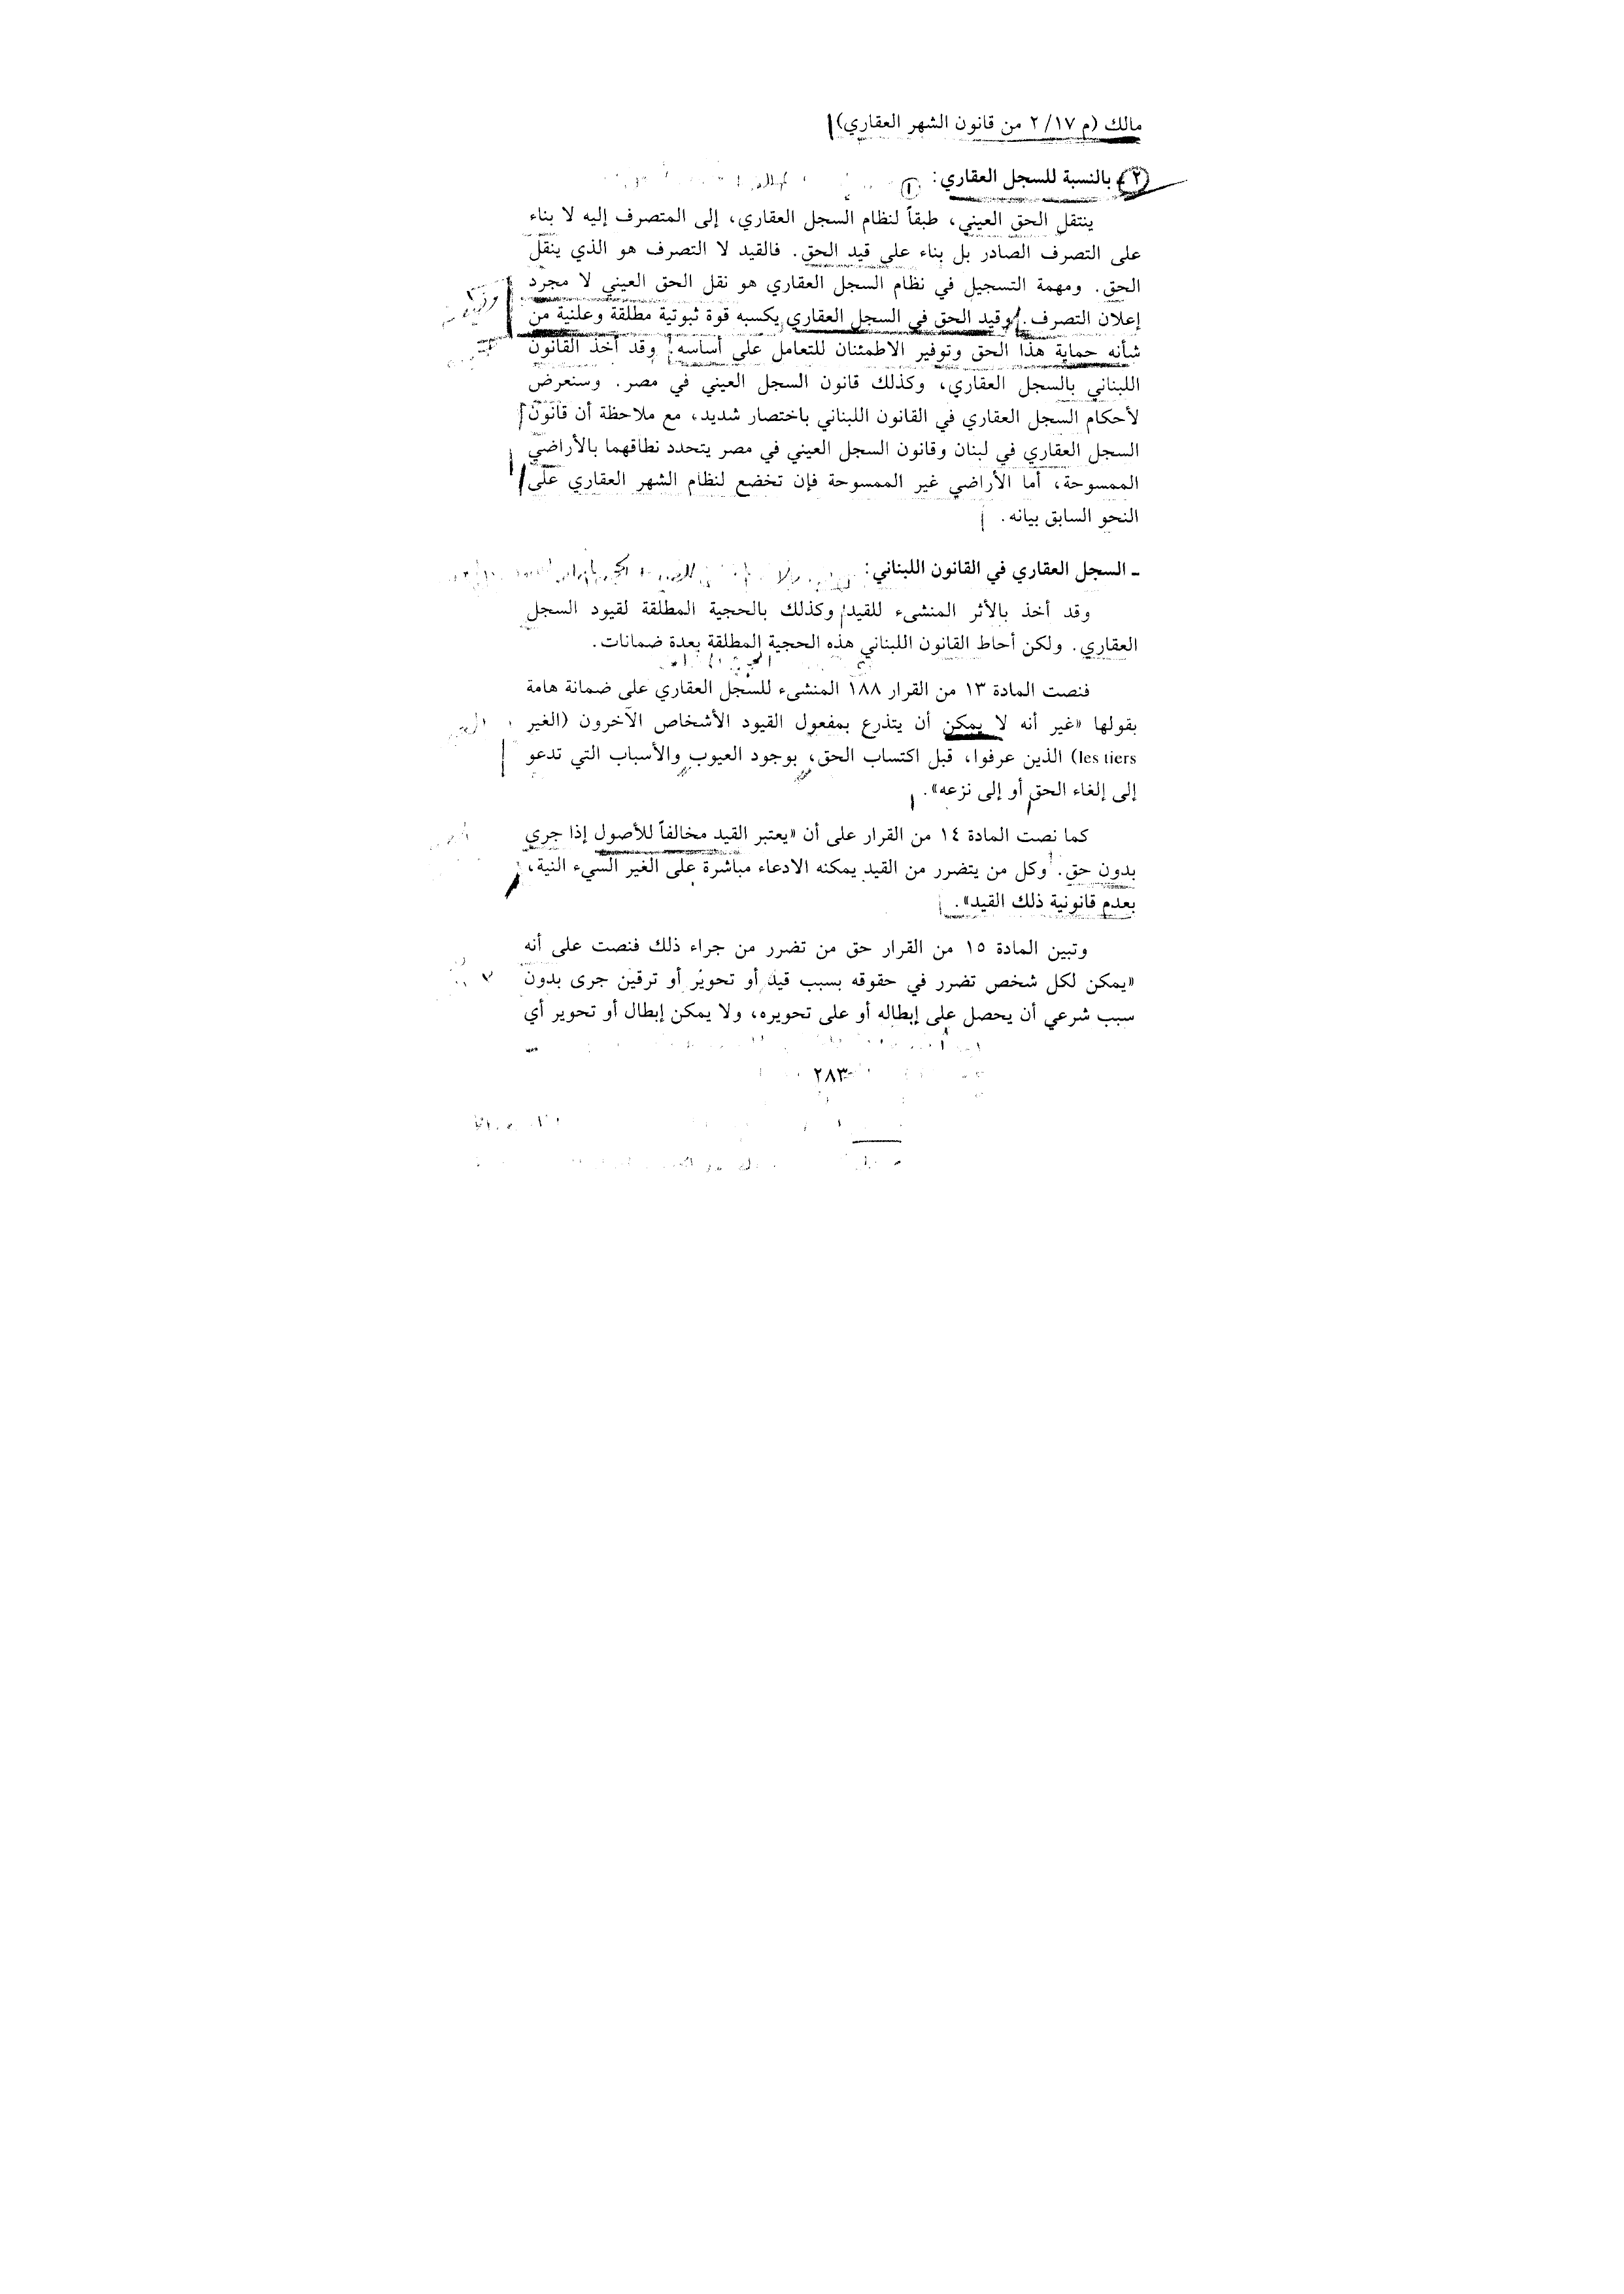 مالك (م ١٧/ ٢ من قانون الشهر العقاري)
٢ - بالنسبة للسجل العقاري:
ينتقل الحق العيني، طبقاً لنظام السجل العقاري، إلى المتصرف إليه لا بناء
على التصرف الصادر بل بناء على قيد الحق. فالقيد لا التصرف هو الذي ينقل
الحق. ومهمة التسجيل في نظام السجل العقاري هو نقل الحق العيني لا مجرد
إعلان التصرف. وقيد الحق في السجل العقاري يكسبه قوة ثبوتية مطلقة وعلنية من
شأنه حماية هذا الحق وتوفير الاطمئنان للتعامل على أساسه. وقد أخذ القانون
اللبناني بالسجل العقاري، وكذلك قانون السجل العيني في مصر. وسنعرض
لأحكام السجل العقاري في القانون اللبناني باختصار شديد، مع ملاحظة أن قانون
السجل العقاري في لبنان وقانون السجل العيني في مصر يتحدد نطاقهما بالأراضي
الممسوحة، أما الأراضي غير الممسوحة فإن تخضع لنظام الشهر العقاري على
النحو السابق بيانه.
ـ السجل العقاري في القانون اللبناني:
وقد أخذ بالأثر المنشىء للقيد وكذلك بالحجية المطلقة لقيود السجل
العقاري. ولكن أحاط القانون اللبناني هذه الحجية المطلقة بعدة ضمانات.
فنصت المادة ١٣ من القرار ١٨٨ المنشىء للسجل العقاري على ضمانة هامة
بقولها «غير أنه لا يمكن أن يتذرع بمفعول القيود الأشخاص الآخرون (الغير
les tiers) الذين عرفوا، قبل اكتساب الحق، بوجود العيوب والأسباب التي تدعو
إلى إلغاء الحق أو إلى نزعه».
كما نصت المادة ١٤ من القرار على أن «يعتبر القيد مخالفاً للأصول إذا جرى
بدون حق. وكل من يتضرر من القيد يمكنه الادعاء مباشرة على الغير السيء النية،
بعدم قانونية ذلك القيد».
وتبين المادة ١٥ من القرار حق من تضرر من جراء ذلك فنصت على أنه
«يمكن لكل شخص تضرر في حقوقه بسبب قيد أو تحوير أو ترقين جرى بدون
سبب شرعي أن يحصل على إبطاله أو على تحويره، ولا يمكن إبطال أو تحوير أي
٢٨٣